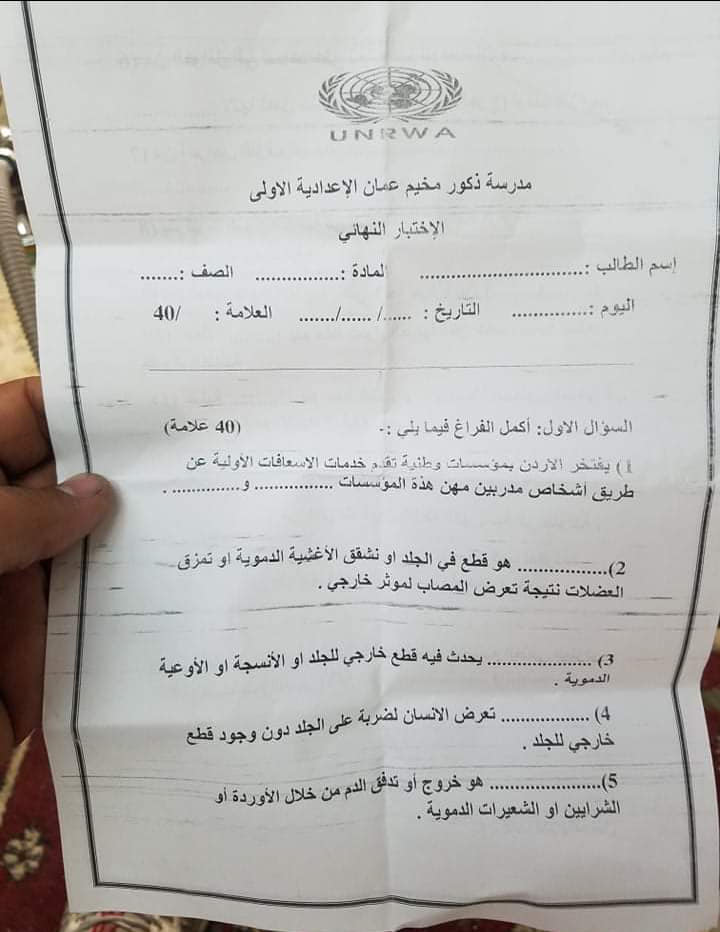 UNRWA
مدرسة ذكور مخيم عمان الإعدادية الاولى
الإختبار النهائي
إسم الطالب :............................. المادة :............... الصف :.......
اليوم :.............. التاريخ : ....../ ....../....... العلامة : /40
السؤال الاول: أكمل الفراغ فيما يلي :- (40 علامة)
1) يفتخر الاردن بمؤسسات وطنية تقدم خدمات الاسعافات الأولية عن
طريق أشخاص مدربين مهن هذة المؤسسات ............... و............. .
2)................ هو قطع في الجلد او نشقق الأغشية الدموية او تمزق
العضلات نتيجة تعرض المصاب لموثر خارجي .
3) ................... يحدث فيه قطع خارجي للجلد او الأنسجة او الأوعية
الدموية .
4) ................ تعرض الانسان لضربة على الجلد دون وجود قطع
خارجي للجلد .
5)..................... هو خروج أو تدفق الدم من خلال الأوردة أو
الشرايين او الشعيرات الدموية .